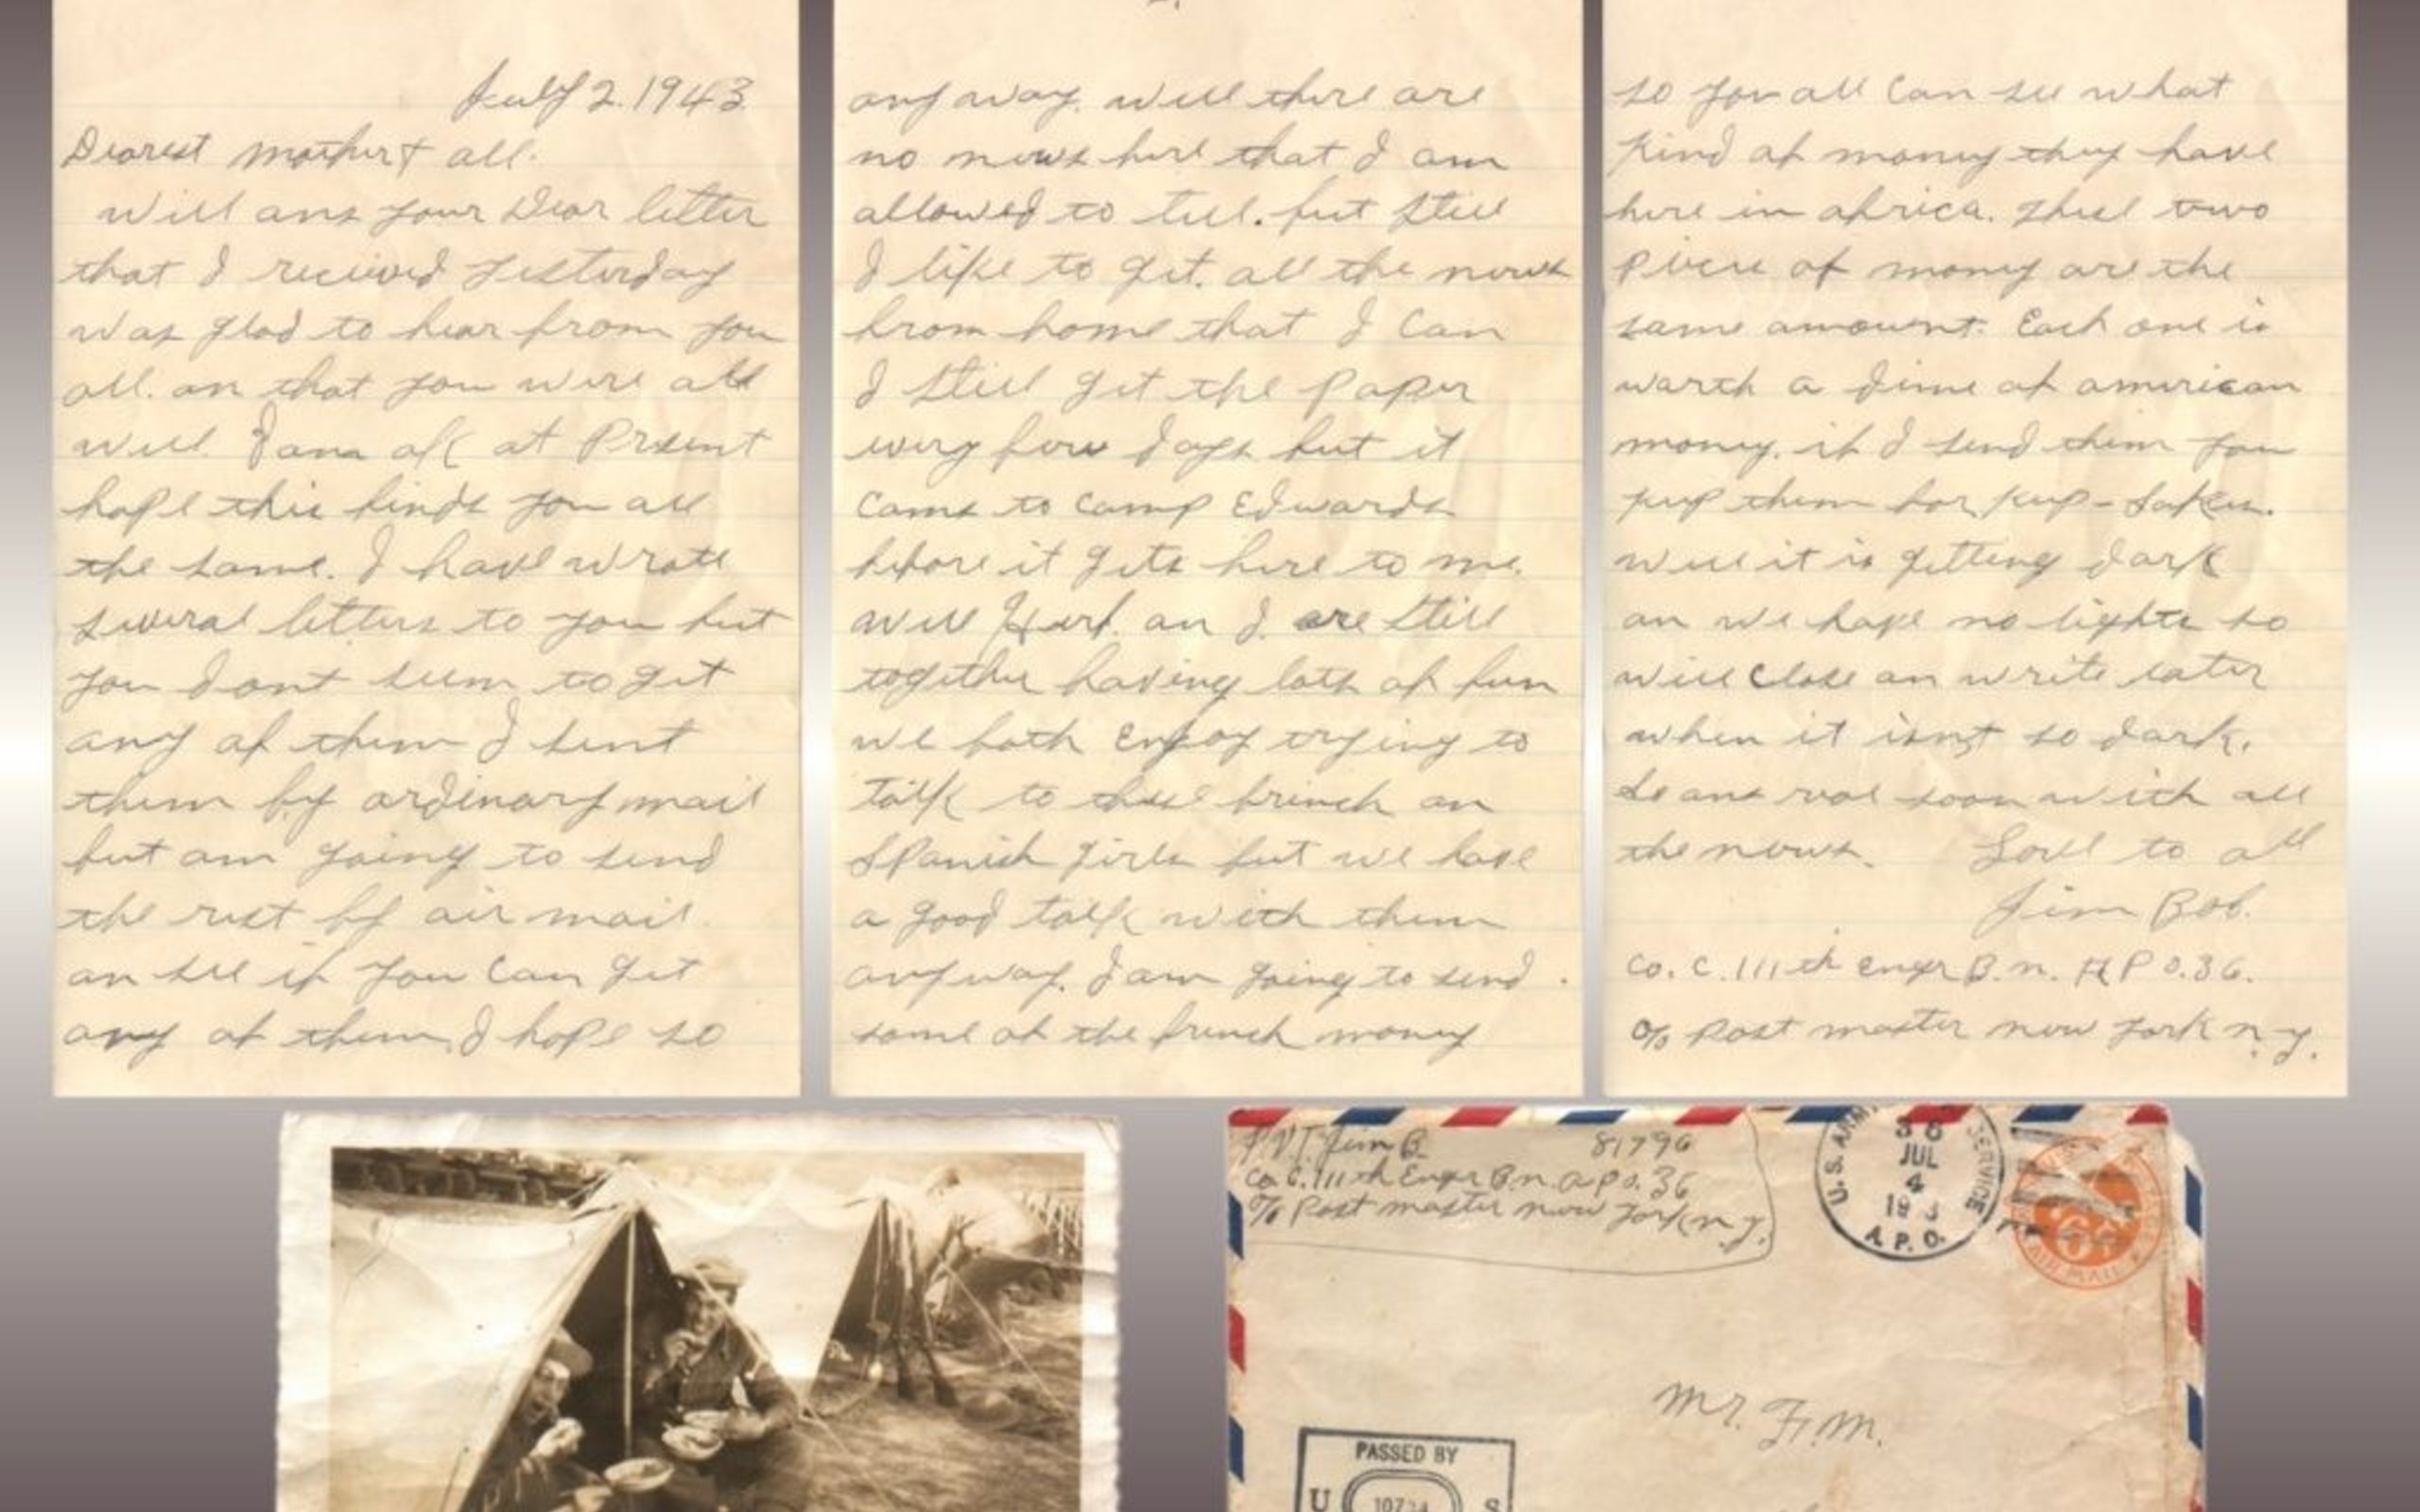 July 2. 1943
Dearest mother & all.
Will ans your Dear letter
that I recieved yesterday
was glad to hear from you
all. an that you were all
well I am ok at Present
hope this finds you all
the same. I have wrote
several letters to you but
you dont seem to get
any of them I sent
them by ordinary mail
but am going to send
the rest by air mail.
an see if you can get
any of them, I hope so
any way. well there are
no news here that I am
allowed to tell. but still
I like to get. all the news
from home that I can
I still get the Paper
every few days but it
coms to camp Edwards
before it gets here to me.
well Hurl. an I. are still
together having lots of fun
we both enjoy trying to
talk to these french an
Spanish girls but we have
a good talk with them
anyway. I am going to send.
some of the french money
so you all can see what
kind of money they have
here in africa. these two
piece of money are the
same amount. Each one is
warth a dime of american
money. if I send them you
keep them for keep-sakes.
well it is getting dark
an we have no lights so
will close an write later
when it isnt so dark.
so ans real soon with all
the news. Love to all
Jim Bob.
Co. C. 111th Engr B.n. A P O. 36.
c/o Post master new York n.y.
P.V.T. Jim B. 81796
Co C. 111th Engr B.n. a p o. 36
c/o Post master new York n.y.
U.S. ARMY SERVICE
36
JUL
4
A.P.O.
AIR MAIL
6¢
Mr. F. M.
PASSED BY
U S